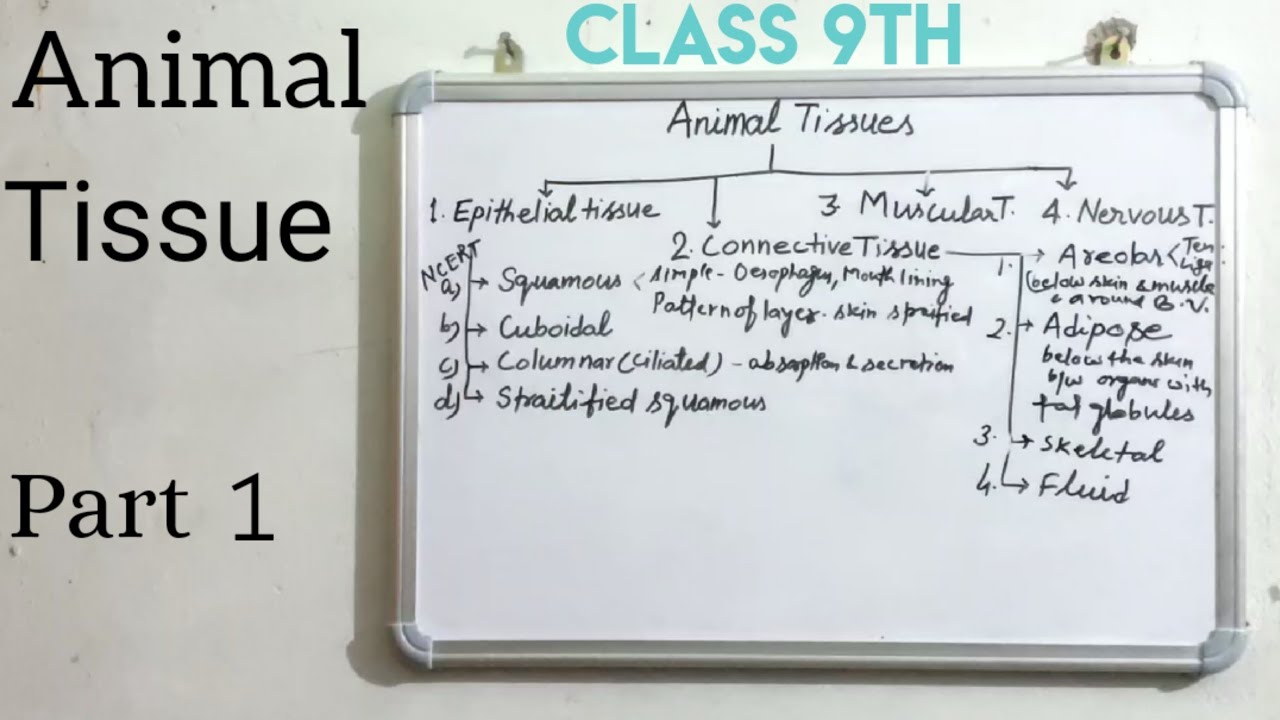 Animal
Tissue
Part 1
CLASS 9TH
Animal Tissues
1. Epithelial tissue
2. Connective Tissue
3 Muscular T.
4. Nervous T.
NCERT
a) Squamous < simple - Oesophagus, Mouth lining
Pattern of layer. skin
b) Cuboidal
c) Columnar (ciliated) - absorption & secretion
d) Straitified squamous
1. Areolar < Ten:
Liga
(below skin & muscle
& around B.V.
2. Adipose
below the skin
b/w organs with
fat globules
3. Skeletal
4. Fluid